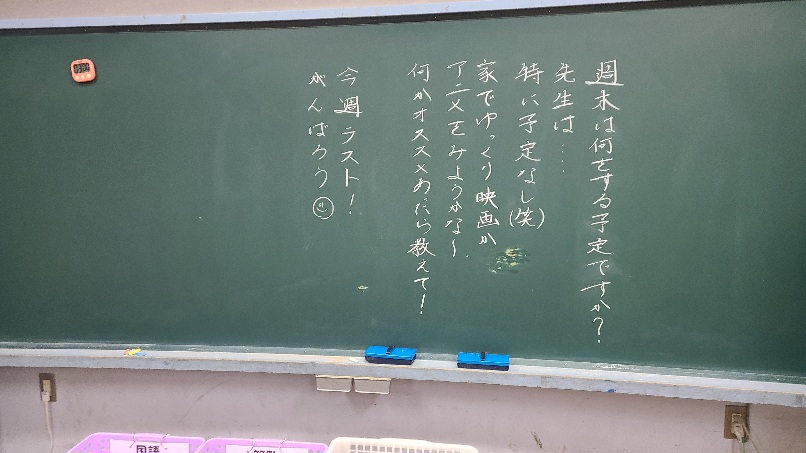 週末は何をする予定ですか?
先生は…
特に予定なし(笑)
家でゆっくり映画か
アニメをみようかな〜.
何かオススメあったら教えて!
今週ラスト!
がんばろう
国語